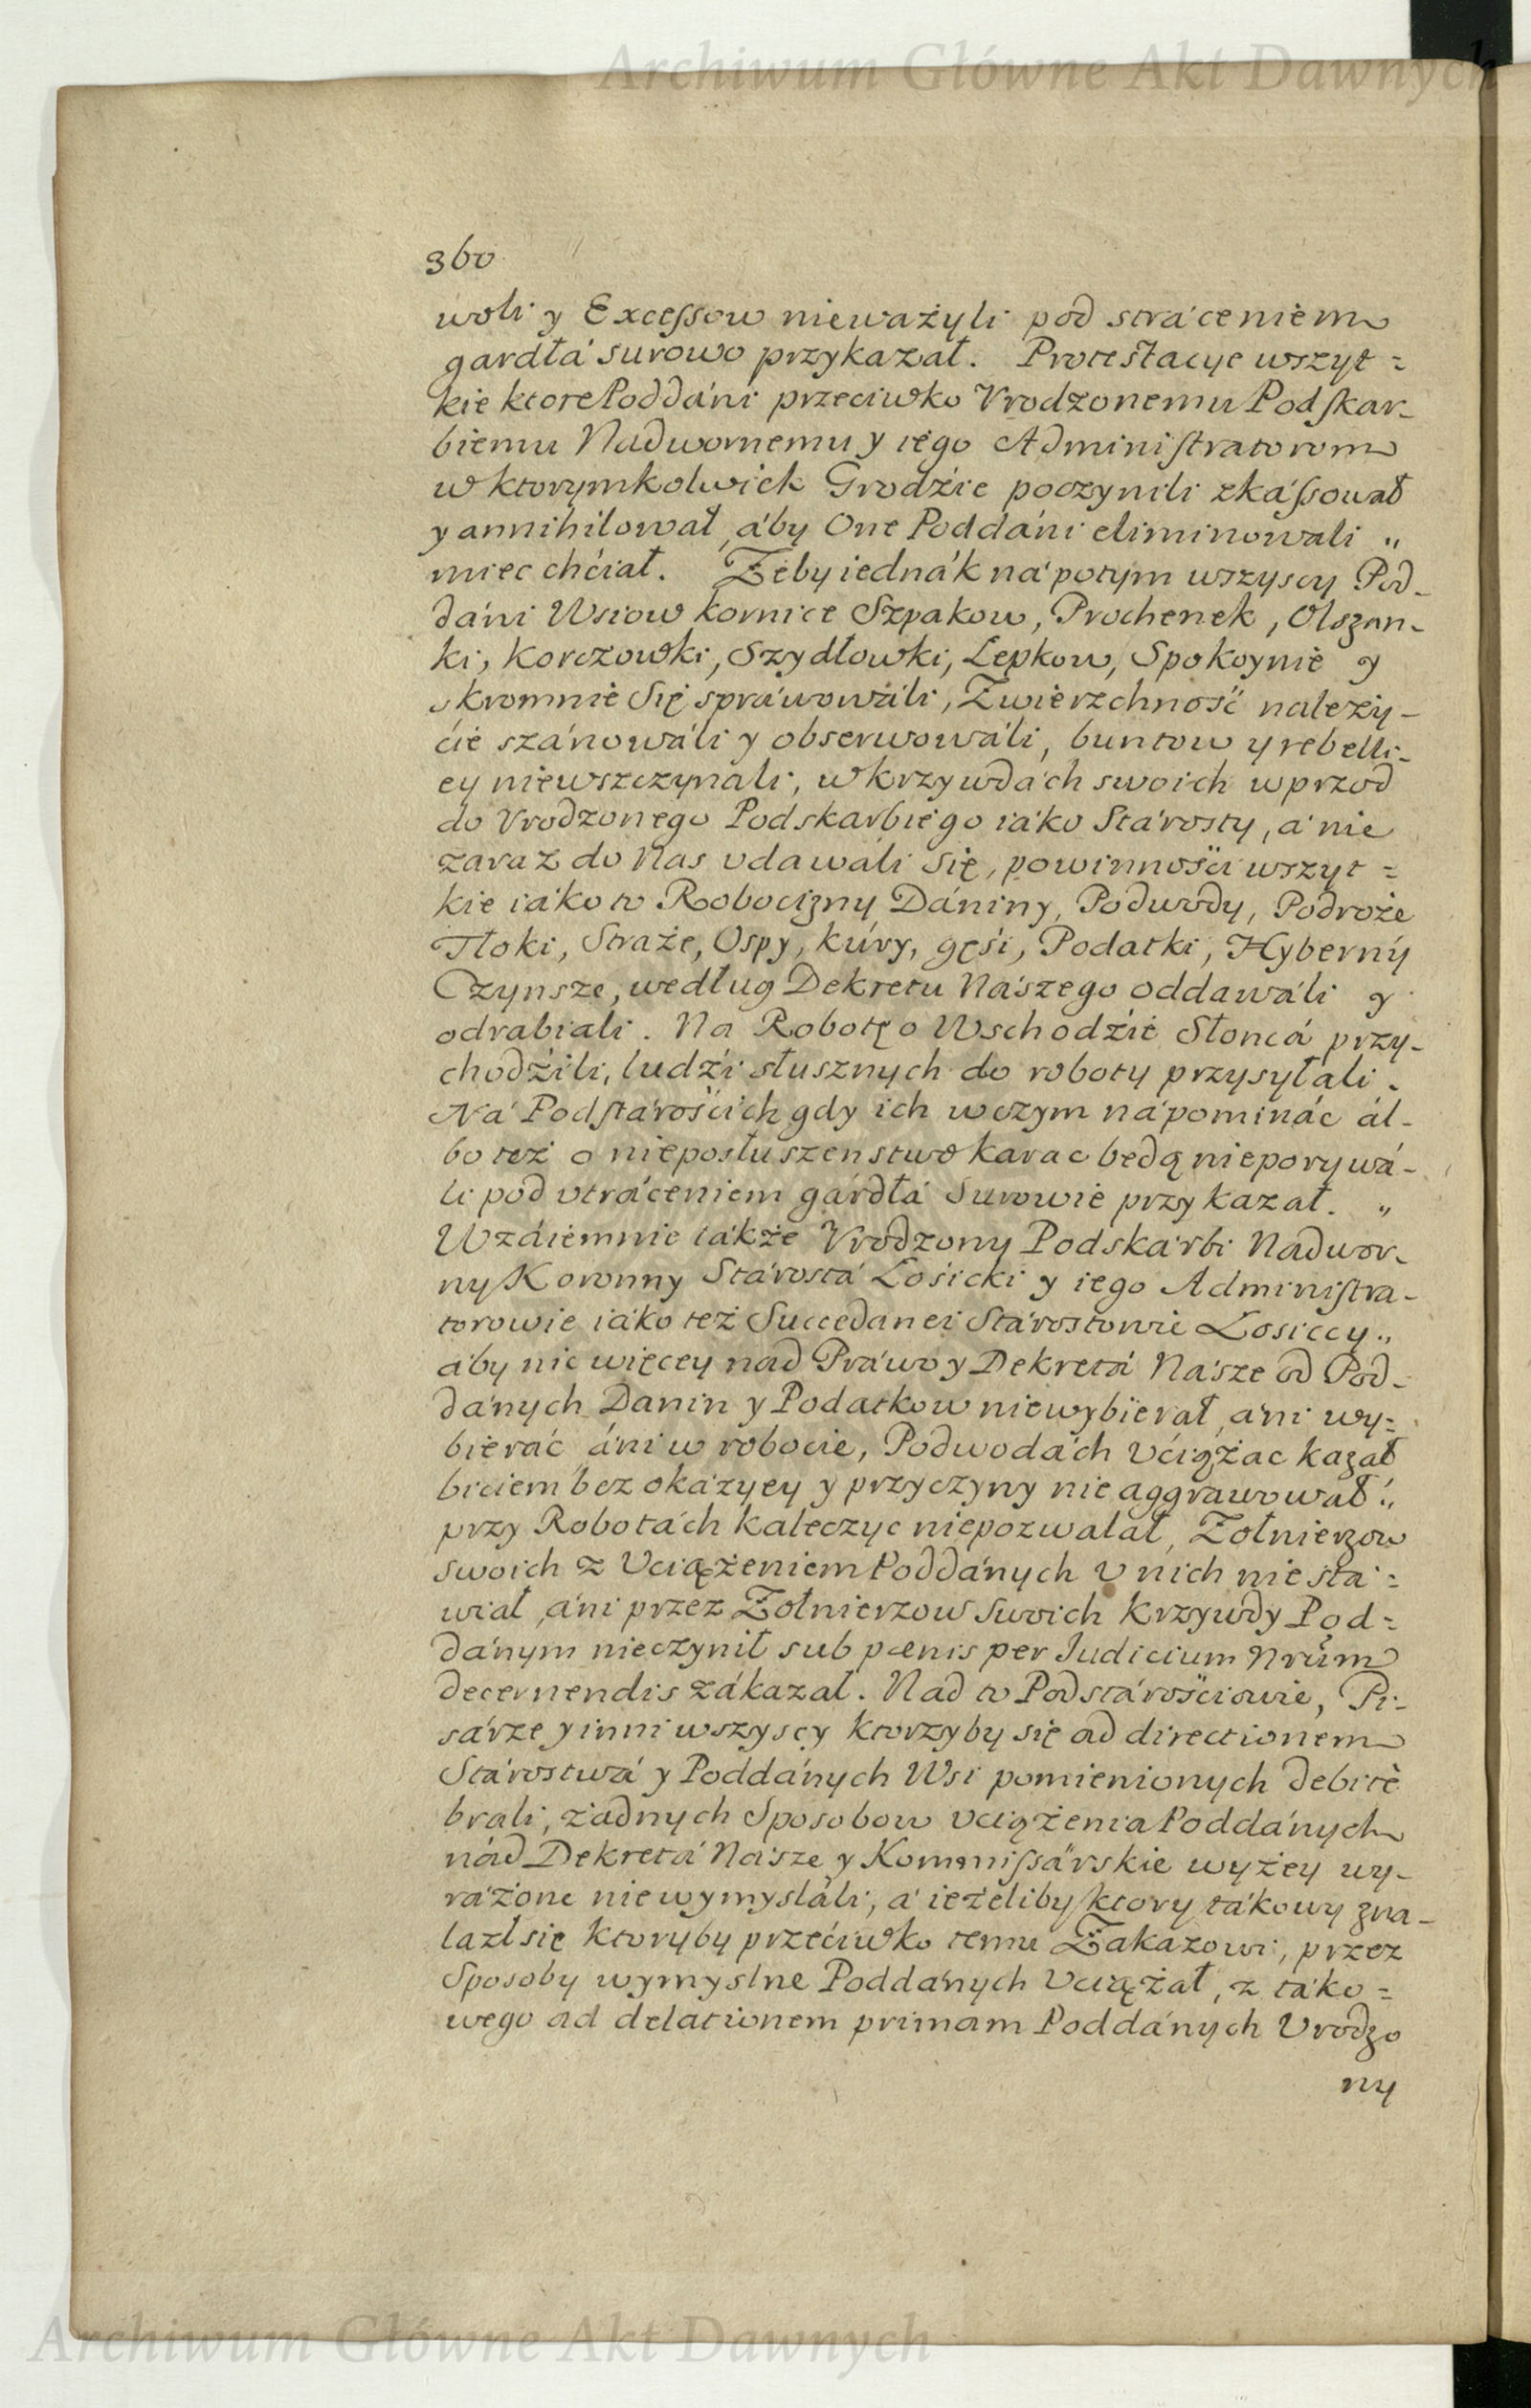 Archiwum Główne Akt Dawnych
360
woli y Excessow nieważyli pod stráceniem
gardłá surowo przykazał. Protestacye wszyt=
kie ktore Poddáni przeciwko Vrodzonemu Podskar-
biemu Nadwornemu y iego Administratorom
w ktorymkolwiek Grodźie poczynili zkássował
y annihilował, áby One Poddáni eliminowali „
miec chćiał. Żeby iednák ná potym wszyscy Pod-
dáni Wsiow Kornice Szpakow, Prochenek, Olszan-
ki, Korczowki, Szydłowki, Lepkow, Spokoynie y
skromnie Się spráwowáli, Zwierzchność należy-
ćie szánowáli y obserwowáli, buntow y rebelli-
ey niewszczynali, w krzywdách swoich wprzod
do Vrodzonego Podskarbiego iáko Stárosty, á nie
zaraz do Nas vdawáli Się, powinnośći wszyt=
kie iáko to Robocizny Dániny, Podwody, Podroże
Tłoki, Straże, Ospy, kúry, gęśi, Podatki, Hyberny
Czynsze, według Dekretu Nászego oddawáli y
odrabiali. Na Robotę o Wschodźie Słoncá przy-
chodźili, ludźi słusznych do roboty przysyłali.
Ná Podstárośćich gdy ich wczym nápomináć ál-
bo też o nieposłuszenstwo karac będą nieporywá-
li pod vtráceniem gárdłá Surowie przykazał. „
Wzáiemnie tákże Vrodzony Podskárbi Nadwor-
ny Koronny Stárostá Łośicki y iego Administra-
torowie iáko też Succedanei Stárostowie Łosiccy „
áby nic więcey nad Práwo y Dekretá Násze od Pod-
dánych Danin y Podatkow niewybierał, áni wy=
bieráć áni w robocie, Podwodách vćiążac kazał
biciem bez okázyey y przyczyny nie aggrawował „
przy Robotách kaleczyc niepozwalał, Żołnierzow
swoich z Vciążeniem Poddánych v nich nie stá=
wiał, áni przez Żołnierzow Swoich krzywdy Pod=
dánym nieczynił sub pœnis per Iudicium Nrūm
decernendis zákazał. Nad to Podstárośćiowie, Pi-
sárze y inni wszyscy ktorzyby się ad directionem
Stárostwá y Poddánych Wsi pomienionych debitè
brali, żadnych Sposobow vciążenia Poddánych
nád Dekretá Násze y Kommissárskie wyżey wy-
ráżone niewymysláli, á ieżeliby ktory tákowy zna-
lazł się ktoryby przećiwko temu Zakazowi, przez
Sposoby wymyslne Poddánych Vciążał, z táko=
wego ad delationem primam Poddánych Vrodzo
ny
Archiwum Główne Akt Dawnych